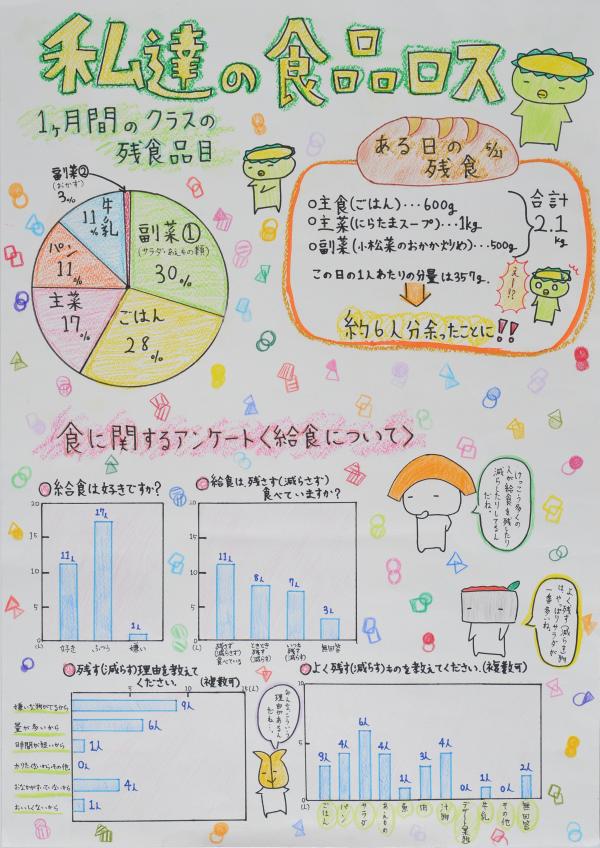 私達の食品ロス
1ヶ月間のクラスの
残食品目
副菜②
(おかず)
3%
牛乳
11%
パン
11%
主菜
17%
ごはん
28%
副菜①
(サラダ・あえもの類)
30%
ある日の
残食
5/21
○主食(ごはん)…600g
○主菜(にらたまスープ)…1kg
○副菜(小松菜のおかか炒め)…500g
合計
2.1kg
この日の1人あたりの分量は357g.
えー!?
約6人分余ったことに!!
食に関するアンケート〈給食について〉
給食は好きですか?
20
15
10
5
(人)
11人
17人
1人
好き
ふつう
嫌い
給食は、残さず(減らさず)
食べていますか?
20
15
10
5
(人)
11人
8人
7人
3人
残さず
(減らさず)
食べている
ときどき
残す
(減らす)
いつも
残す
(減らす)
無回答
けっこう多くの
人が給食を残したり
減らしたりしてるん
だね。
よく残す(減らす)物
は、やっぱりサラダが
一番多いね。
残す(減らす)理由を教えて
ください。(複数可)
5
10
15(人)
嫌いな物がでるから
9人
量が多いから
6人
時間が短いから
1人
0人
おなかがすいていないから
4人
おいしくないから
1人
みんな、こういう
理由があるん
だね…
よく残す(減らす)ものを教えてください.(複数可)
10
5
(人)
3人
4人
6人
4人
1人
3人
4人
0人
1人
0人
2人
ごはん
パン
サラダ
あえもの
魚
肉
汁物
デザート・果物
牛乳
その他
無回答